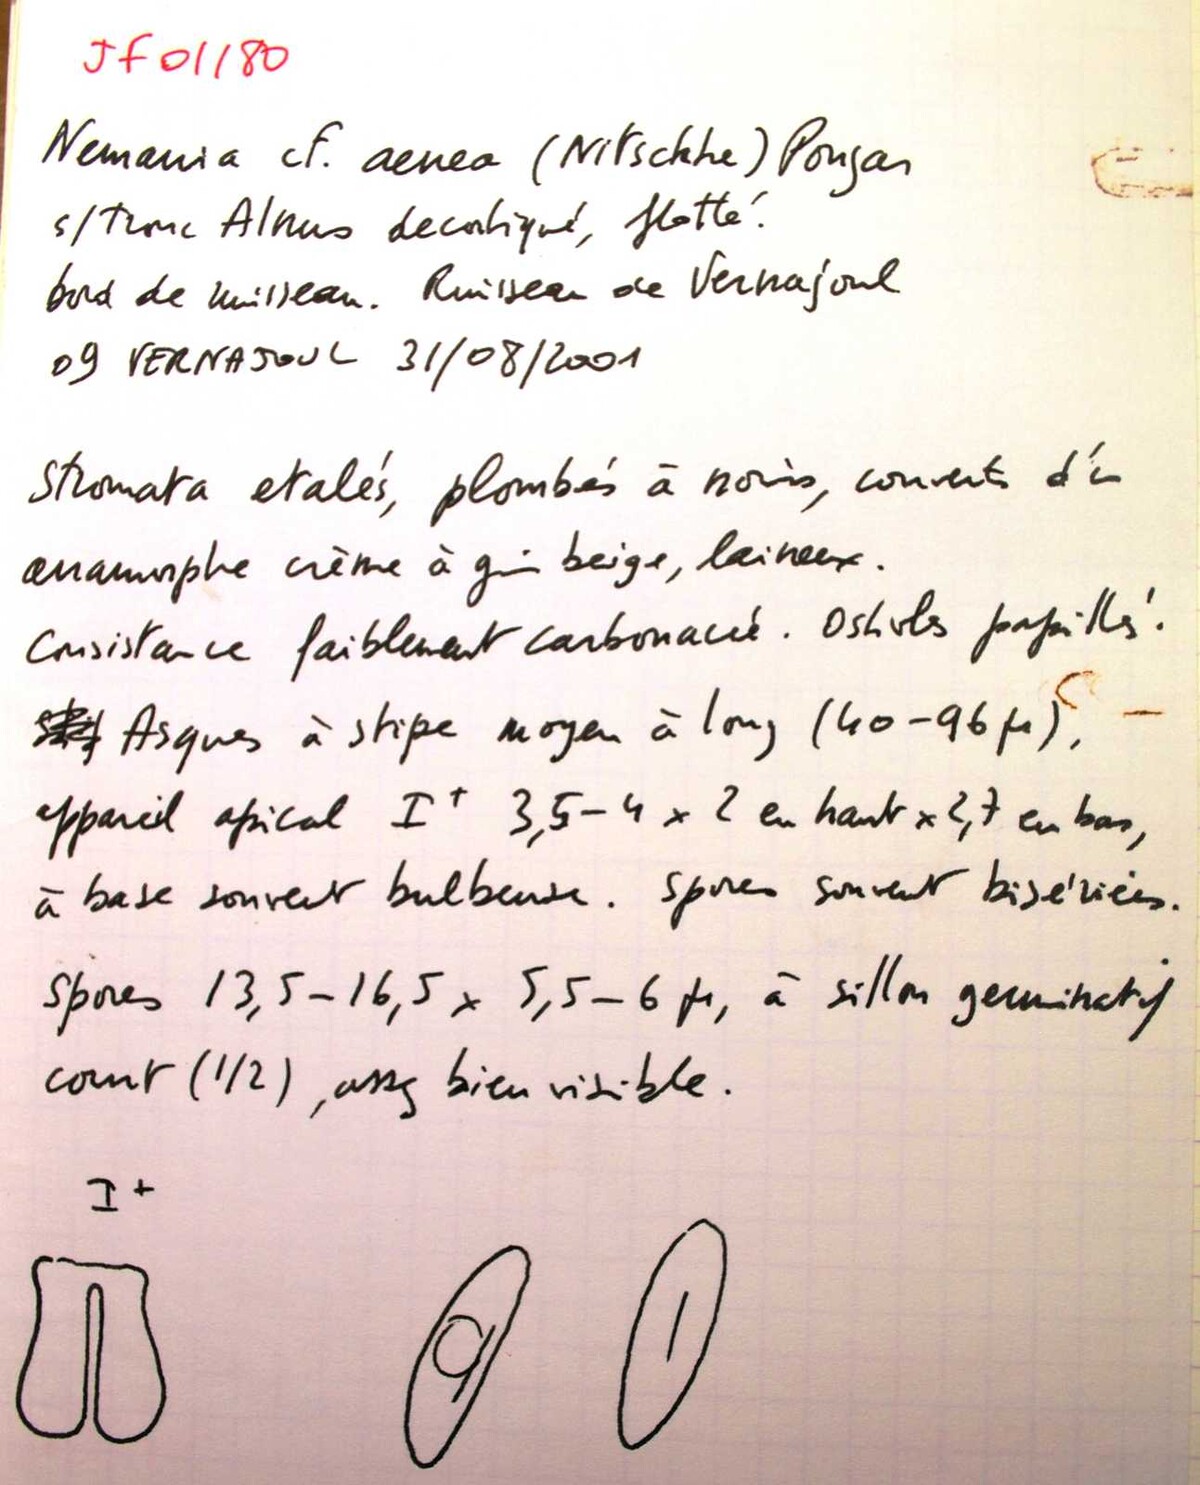 JF01/80
Nemania cf. aenea (Nitschke) Pouzar
s/tronc Alnus decortiqué, flotté.
bord de ruisseau. Ruisseau de Vernajoul
09 VERNAJOUL 31/08/2001
Stromata etalés, plombés à noirs, couverts d'un
anamorphe crème à gris beige, laineux.
Consistance faiblement carbonacée. Ostioles papillés.
Asques à stipe moyen à long (40-96 µ),
appareil apical I+ 3,5-4 x 2 en haut x 2,7 en bas,
à base souvent bulbeuse. Spores souvent bisériées.
Spores 13,5-16,5 x 5,5-6 µ, à sillon germinatif
court (1/2), assez bien visible.
I+